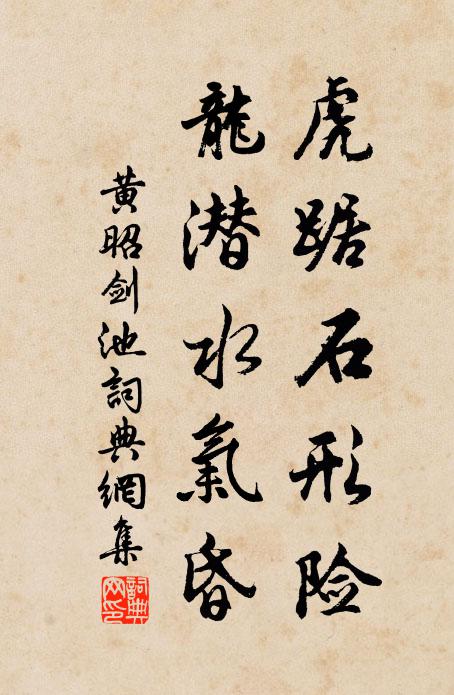 虎踞石形险
龍潜水氣昏
黄昭剑池詞典網集
詞典网印